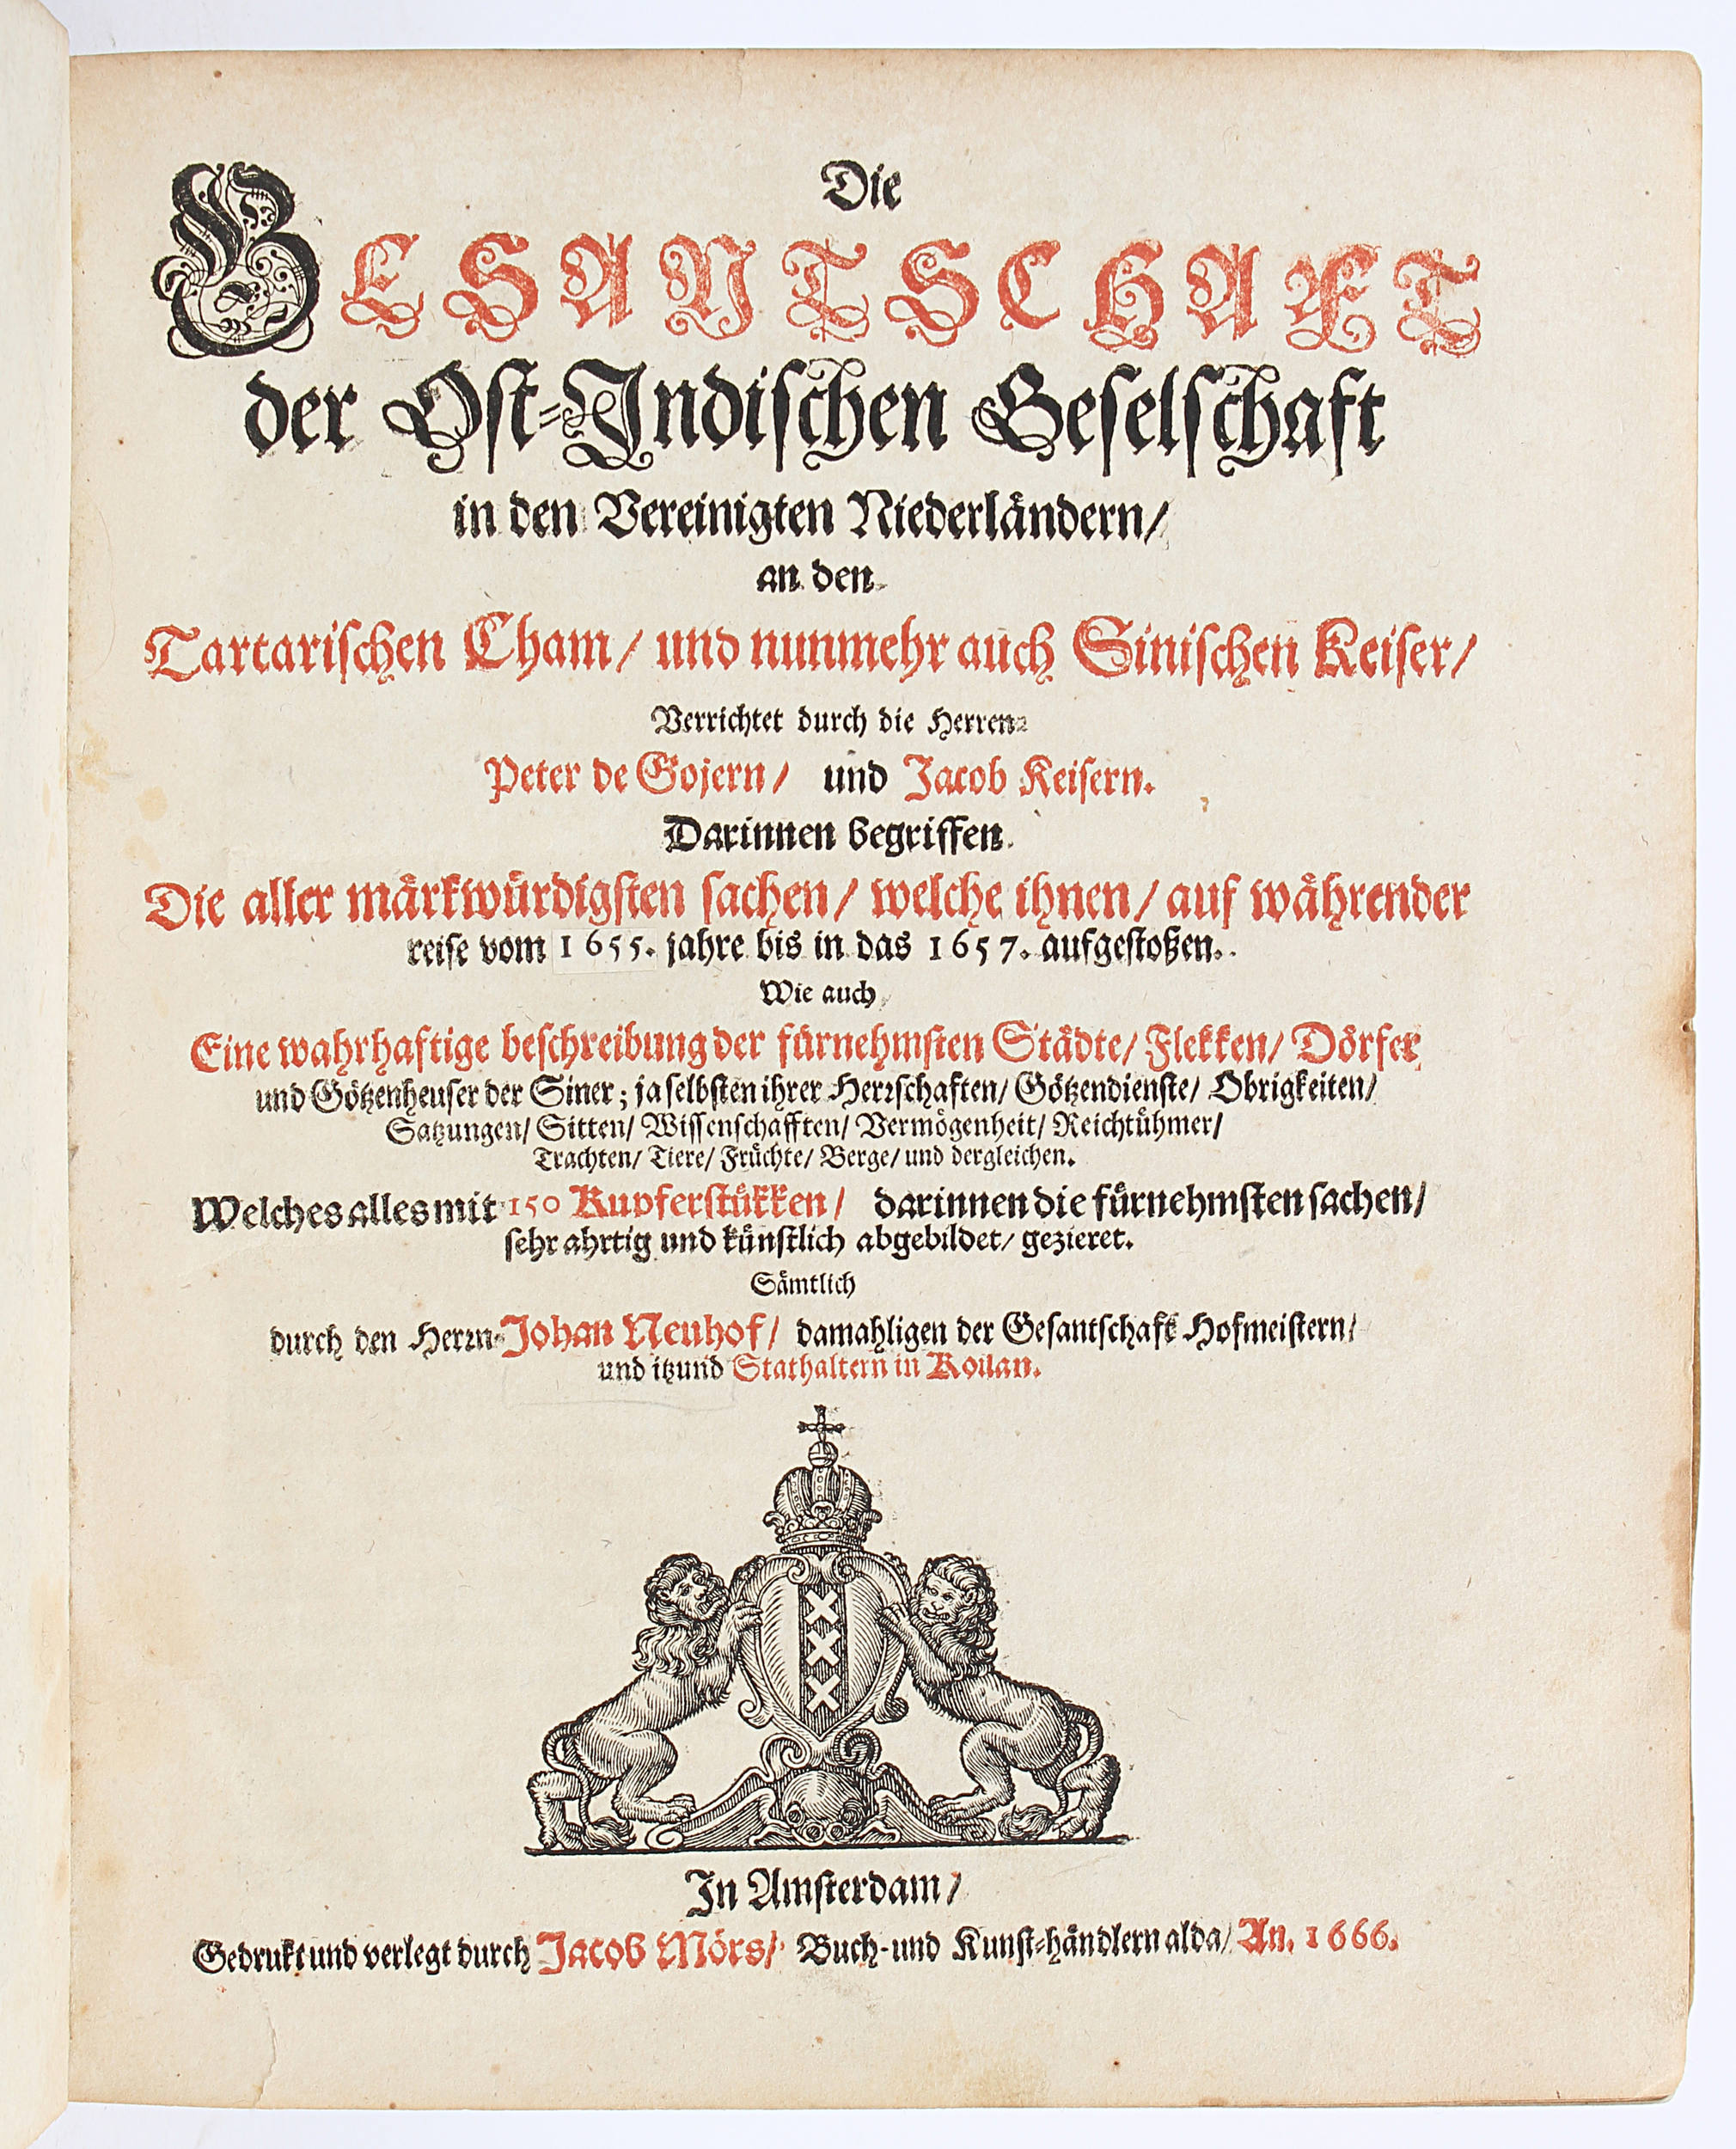 Die
GESANTSCHAFT
der Ost-Indischen Geselschaft
in den Vereinigten Niederländern/
an den
Tartarischen Cham/ und nunmehr auch Sinischen Keiser/
Verrichtet durch die Herren
Peter de Gojern/ und Jacob Keisern.
Darinnen begriffen
Die aller märkwürdigsten sachen/ welche ihnen/ auf währender
reise vom 1655. jahre bis in das 1657. aufgestoßen.
Wie auch
Eine wahrhaftige beschreibung der fürnehmsten Städte/ Flekken/ Dörfer
und Götzenheuser der Siner; ja selbsten ihrer Herrschaften/ Götzendienste/ Obrigkeiten/
Satzungen/ Sitten/ Wissenschafften/ Vermögenheit/ Reichtühmer/
Trachten/ Tiere/ Früchte/ Berge/ und dergleichen.
Welches alles mit 150 Kupferstükken/ darinnen die fürnehmsten sachen/
sehr ahrtig und künstlich abgebildet/ gezieret.
Sämtlich
durch den Herrn Johan Neuhof/ damahligen der Gesantschaft Hofmeistern/
und itzund Stathaltern in Koilan.
In Amsterdam/
Gedrukt und verlegt durch Jacob Mörs/ Buch- und Kunst-händlern alda/ An. 1666.